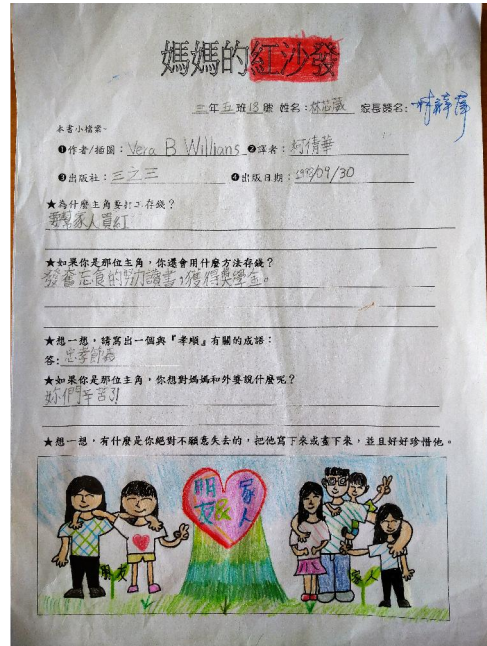 媽媽的紅沙發
三年五班18號 姓名:林芯葳 家長簽名:
本書小檔案~
❶作者/插圖:Vera B Willians ❷譯者:柯倩華
❸出版社:三之三 ❹出版日期:1998/09/30
★為什麼主角要打工存錢?
要幫家人買紅
★如果你是那位主角,你還會用什麼方法存錢?
發奮忘食的努力讀書,獲得獎學金。
★想一想,請寫出一個與『孝順』有關的成語:
答:忠孝節義
★如果你是那位主角,你想對媽媽和外婆說什麼呢?
妳們辛苦了!
★想一想,有什麼是你絕對不願意失去的,把他寫下來或畫下來,並且好好珍惜他。
朋友&家人
朋友
家人